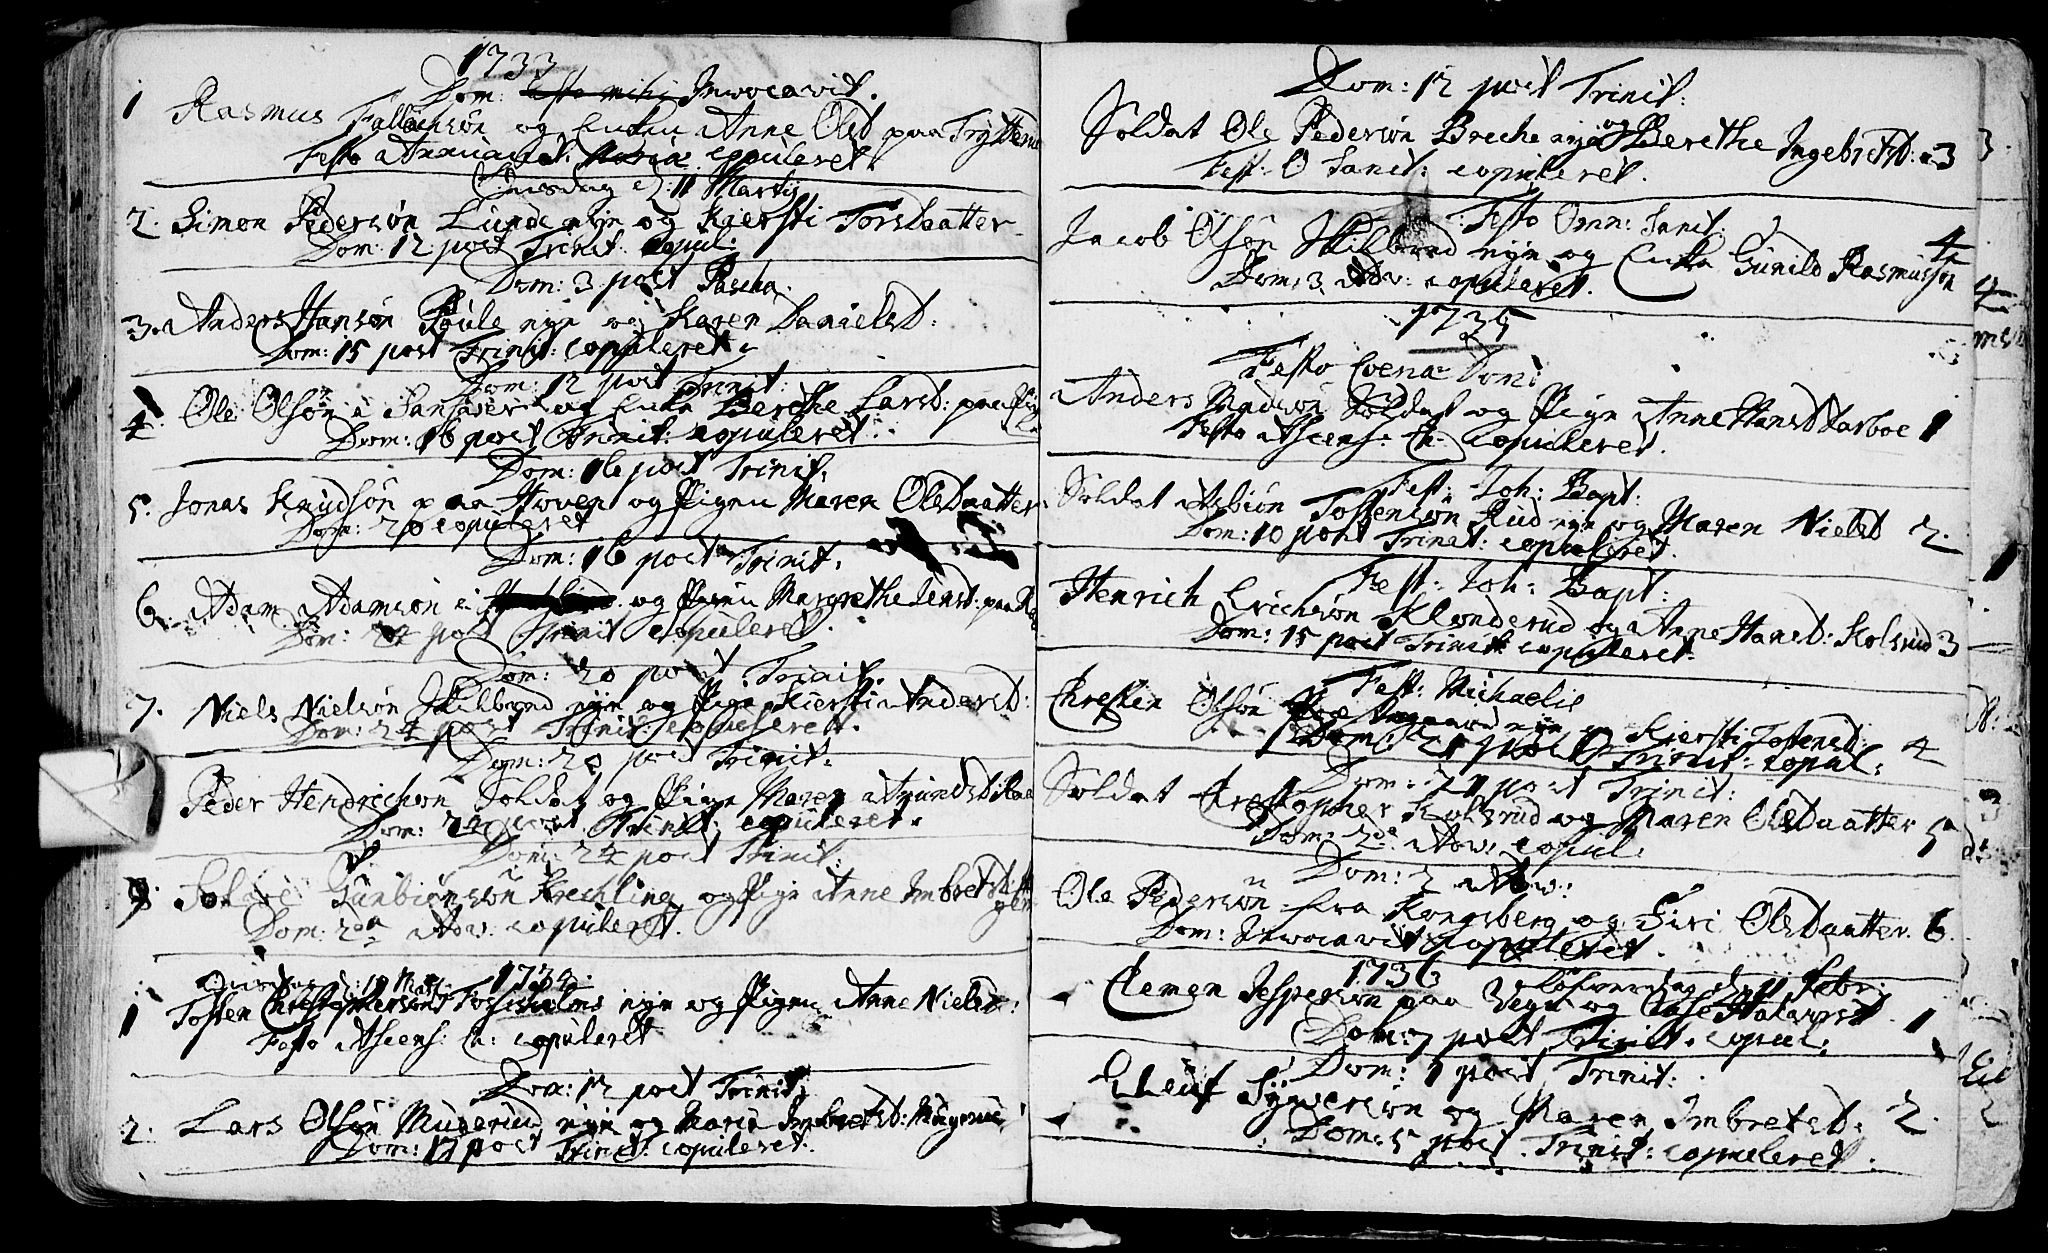 1733
Dom: Esto mihi Invocavit.
1 Rasmus og Enken Anne Olsd paa
Festo Annunciat: Mariæ copuleret
Onsdag d: 11 Martij
2. Simon Pedersøn Lunde eye og Kiersti Torsdaatter
Dom: 12 post Trinit: Copul:
Dom: 3 post Pascha.
3. Anders Hansøn eye og Karen Danielsd:
Dom: 15 post Trinit: copuleret
Dom: 12 post Trinit:
4. Ole Olsøn i og Enke Berthe Larsd: paa
Dom: 16 post Trinit: copuleret.
Dom: 16 post Trinit:
5. Jonas Knudsøn paa Hoven og Pigen Maren Olsdaatter
Dom: 20 copuleret
Dom: 16 post Trinit:
6. Adam Adamsøn i og Pigen Margrethe Jensd: paa
Dom: 24 post Trinit copuleret.
Dom: 20 post Trinit.
7. Niels Nielsøn Skilbred eye og Pigen Kiersti Andersd:
Dom: 24 post Trinit: copuleret.
Dom: 20 post Trinit:
Peder Hendrichsøn Soldat og Pigen Maren Amundsd
Dom: 24 post Trinit: copuleret.
Dom: 24 post Trinit:
9. Gunbiørnsøn Krechling og Pige Anne Imbretsd
Dom: 2da Adv: copuleret.
1734.
1 Tosten Christophersøn eye og Pigen Anne Nielsd:
Festo Ascens: Ch: copuleret
Dom: 12 post Trinit:
2. Lars Olsøn Muggerud eye og Maria Imbretsd:
Dom: 17 post Trinit: copuleret.
Dom: 12 post Trinit:
Soldat Ole Pedersøn Breche eye og Berethe Ingebretsd: 3
Fest: O Sanct: copuleret.
Festo Omn: Sanct:
Jacob Olsøn Skilbred eye og Enke Gunild Rasmussøn 4
Dom: 3 Adv: copuleret.
1735
Festo Coenæ Domi
Anders Madsøn Soldat og Pige Anne Hansd Darboe 1
Festo Ascens: Ch: Copuleret.
Fest: Joh: Bapt:
Soldat Asbiøn Tostensøn Rud eye og Maren Nielsd 2.
Dom: 10 post Trinit: copuleret.
Fest: Joh: Bapt:
Henrich Erichsøn Klonderud og Anne Hansd: Kolsrud 3
Dom: 15 post Trinit: copuleret.
Fest: Michaelis
Chresten Olsøn eye og Kiersti Tostensd: 4
Dom: 21 post Trinit: Copul:
Dom: 21 post Trinit:
Soldat Chrestopher Kolsrud og Maren Olsdaatter 5
Dom: 2de Adv: copul:
Dom: 2 Adv:
Ole Pedersøn fra Kongsberg og Siri Olsdaatter. 6.
Dom: Invocavit copuleret.
1736
Løfverdag d: 11 Febr:
Clemen Jespersøn paa Vegu og Else Halvorsd. 1
Dom: 7 post Trinit. copul:
Dom: 1 post Trinit:
Eleuf Syversøn og Maren Imbretsd: 2.
Dom: 5 post Trinit: copuleret.